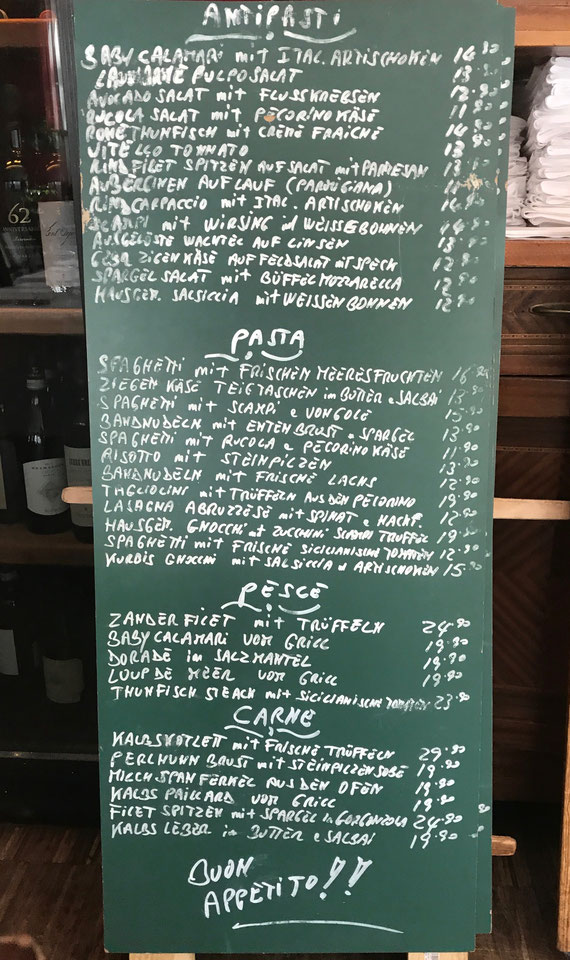 ANTIPASTI
BABY CALAMARI mit ITAL. ARTISCHOKEN 14.90
LAUWARME PULPOSALAT 13.90
AVOCADO SALAT mit FLUSSKREBSEN 12.90
RUCOLA SALAT mit PECORINO KÄSE 11.90
ROHE THUNFISCH mit CREME FRAICHE 14.90
VITELLO TONNATO 13.90
RINDFILET SPITZEN AUF SALAT mit PARMESAN 13.90
AUBERGINEN AUFLAUF (PARMIGIANA)
RINDCARPACCIO mit ITAL. ARTISCHOKEN 14.90
SCAMPI mit WIRSING ud WEISSE BOHNEN 14.90
AUSGELÖSTE WACHTEL AUF LINSEN 13.90
GEBR ZIGEN KÄSE AUF FELDSALAT mit SPECK 12.90
SPARGEL SALAT mit BÜFFEL MOZZARELLA 12.90
HAUSGEM. SALSICCIA mit WEISSEN BOHNEN 12.90
PASTA
SPAGHETTI mit FRISCHEN MEERESFRUCHTEN 16.90
ZIEGEN KÄSE TEIGTASCHEN im BUTTER e SALBAI 13.90
SPAGHETTI mit SCAMPI e VONGOLE 15.90
BANDNUDELN mit ENTEN BRUST e SPARGEL 13.90
SPAGHETTI mit RUCOLA e PECORINO KÄSE 11.90
RISOTTO mit STEINPILZEN 13.90
BANDNUDELN mit FRISCHE LACHS 12.90
TAGLIOLINI mit TRÜFFELN AUS DEN PECORINO 19.90
LASAGNA ABRUZZESE mit SPINAT e HACKF. 12.90
HAUSGEM. GNOCCHI mit ZUCCHINI SCAMPI TRUFFEL 19.90
SPAGHETTI mit FRISCHE SICILIANISCHE TOMATEN 12.90
KURBIS GNOCCHI mit SALSICCIA ud ARTISCHOKEN 15.90
PESCE
ZANDERFILET mit TRÜFFELN 24.90
BABY CALAMARI VOM GRILL 19.90
DORADE im SALZMANTEL 19.90
LOUP DE MEER VOM GRILL 19.90
THUNFISCH STEACK mit SICILIANISCHE TOMATEN 23.90
CARNE
KALBSKOTLETT mit FRISCHE TRÜFFELN 29.90
PERLHUHN BRUST mit STEINPILZEN SOßE 19.90
MILCH SPANFERKEL AUS DEN OFEN 19.90
KALBS PAILLARD VOM GRILL 19.90
FILET SPITZEN mit SPARGEL in GORGONZOLA 24.90
KALBS LEBER in BUTTER e SALBAI 19.90
BUON
APPETITO!!
62°